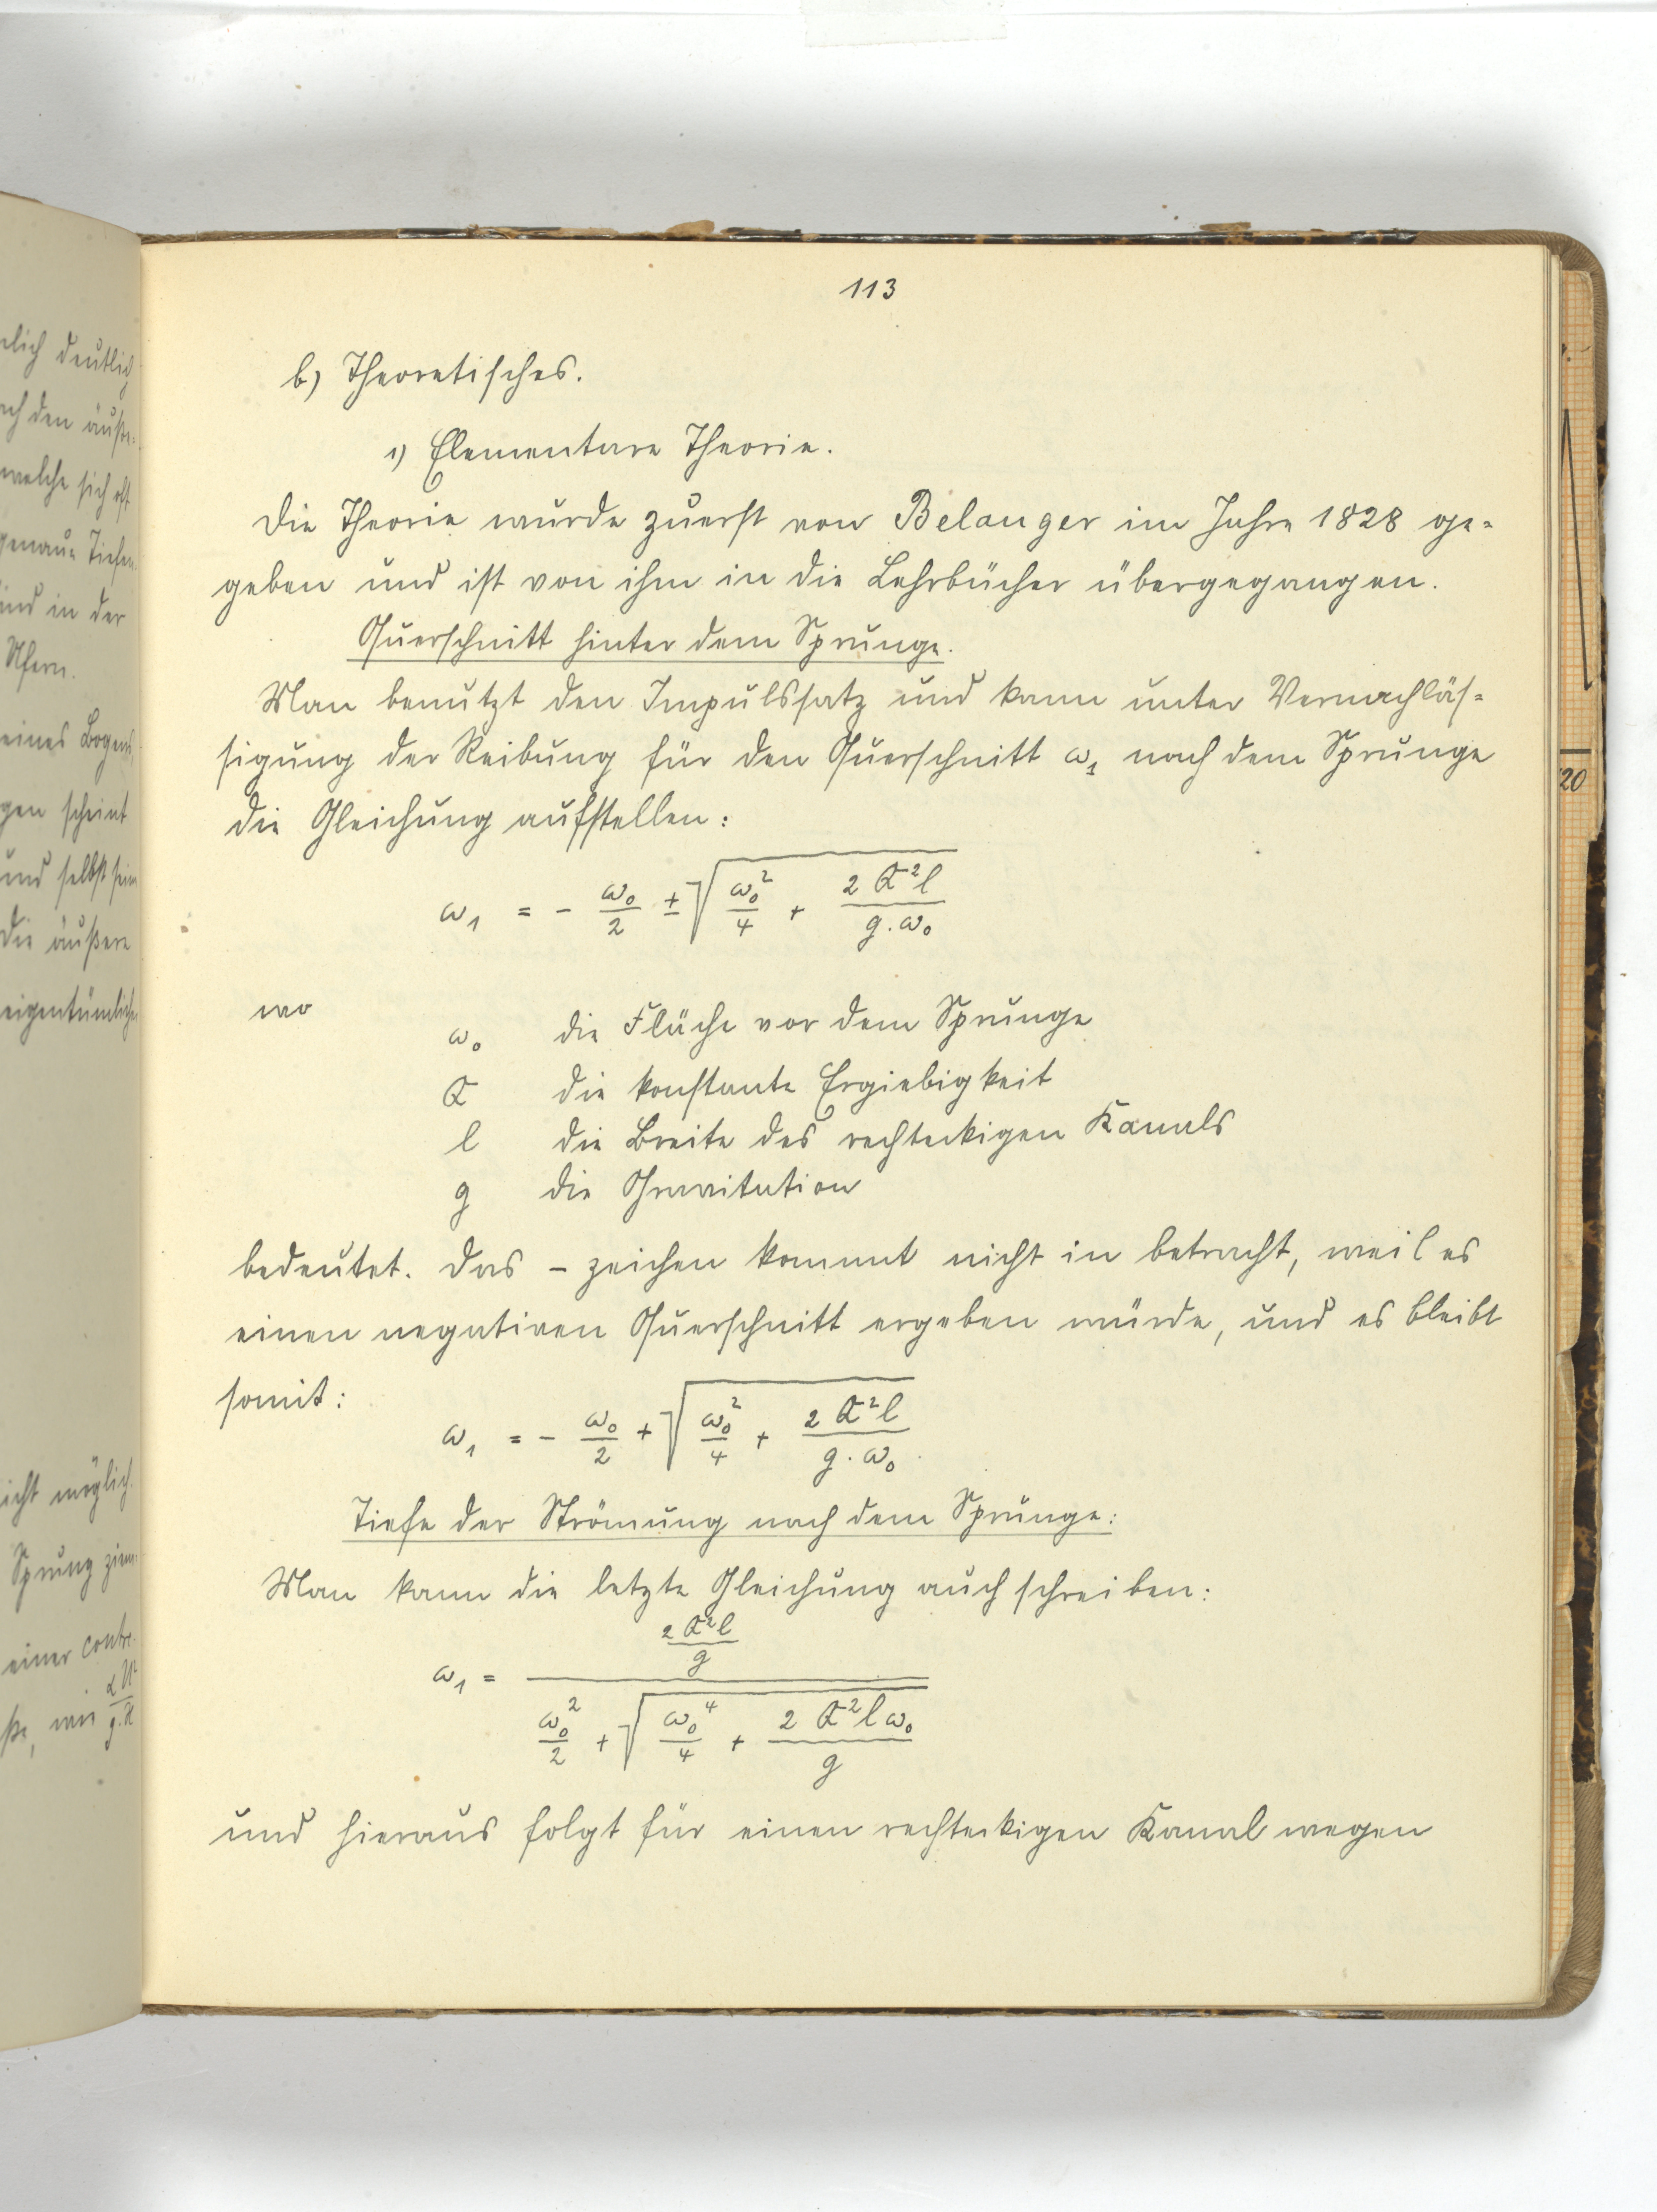 113
b) Theoretisches.
1) Elementare Theorie.
Die Theorie wurde zuerst von Belanger im Jahre 1828 ge-
geben und ist von ihm in die Lehrbücher übergegangen.
Querschnitt hinter dem Sprunge.
Man benutzt den Impulssatz und kann unter Vernachläs-
sigung der Reibung für den Querschnitt ω₁ nach dem Sprunge
die Gleichung aufstellen:
ω₁ = - ω₀/2 ± √(ω₀²/4 + 2Q²l/(g.ω₀))
wo
ω₀ die Fläche vor dem Sprunge
Q die konstante Ergiebigkeit
l die Breite des rechteckigen Kanals
g die Gravitation
bedeutet. Das - zeichen kommt nicht in betracht, weil es
einen negativen Querschnitt ergeben würde, und es bleibt
somit:
ω₁ = - ω₀/2 + √(ω₀²/4 + 2Q²l/(g.ω₀))
Tiefe der Strömung nach dem Sprunge:
Man kann die letzte Gleichung auch schreiben:
ω₁ = (2Q²l/g) / (ω₀²/2 + √(ω₀⁴/4 + 2Q²lω₀/g))
und hieraus folgt für einen rechteckigen Kanal wegen
deutlich
den
welche sich oft
genaue Tiefen
und in der
Ufern.
eines Bogens
scheint
und selbst
die äußere
möglich.
Sprung
einer
20